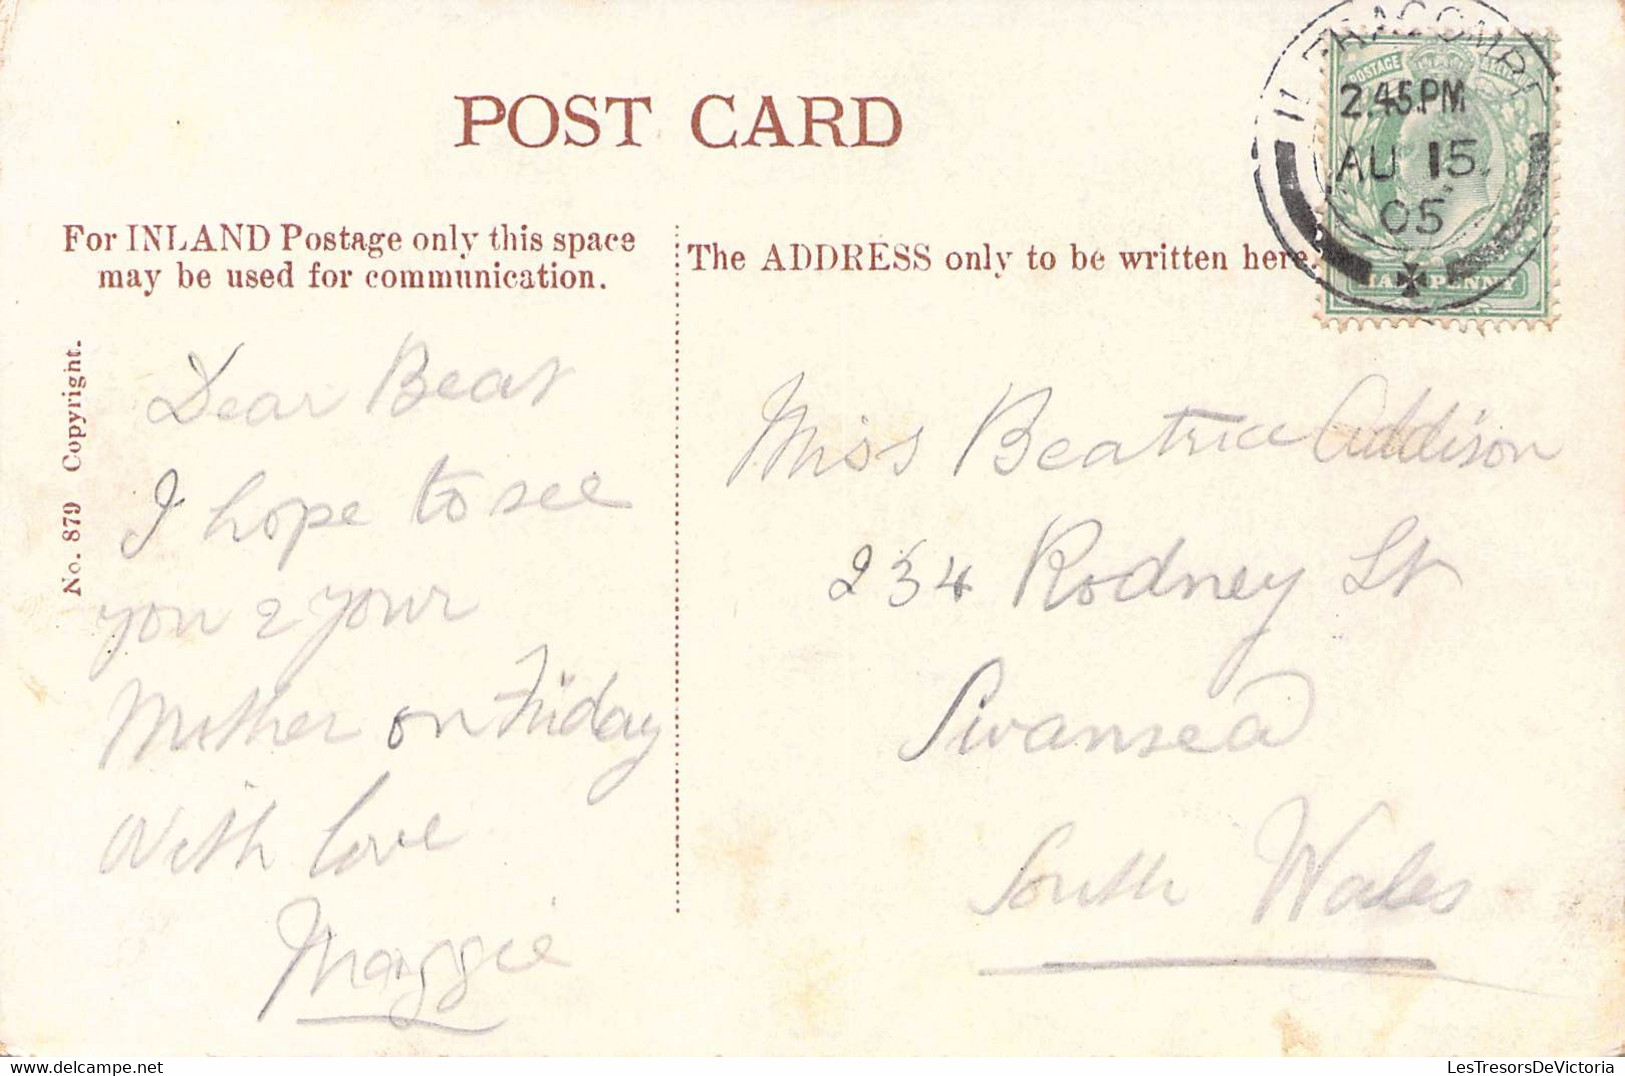 POST CARD
ILFRACOMBE
2.45.PM
AU 15.
05
POSTAGE
HALFPENNY
For INLAND Postage only this space
may be used for communication.
The ADDRESS only to be written here.
No. 879 Copyright.
Dear Beat
I hope to see
you & your
Mother on Friday
With love
Maggie
Miss Beatrice Addison
234 Rodney St
Swansea
South Wales
LesTresorsDeVictoria